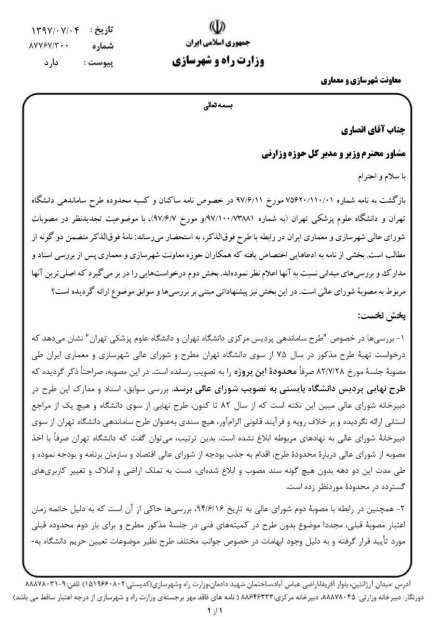 تاریخ : ۱۳۹۷/۰۷/۰۴
شماره ۸۷۷۶۷/۳۰۰
پیوست : دارد
جمهوری اسلامی ایران
وزارت راه و شهرسازی
معاونت شهرسازی و معماری
بسمه تعالی
جناب آقای انصاری
مشاور محترم وزیر و مدیر کل حوزه وزارتی
با سلام و احترام
بازگشت به نامه شماره ۷۵۶۲۰/۱۱۰/۰۱ مورخ ۹۷/۶/۱۱ در خصوص نامه ساکنان و کسبه محدوده طرح ساماندهی دانشگاه
تهران و دانشگاه علوم پزشکی تهران (به شماره ۹۷/۱۰۰/۷۳۸۸۱و مورخ ۹۷/۶/۷)، با موضوعیت تجدیدنظر در مصوبات
شورای عالی شهرسازی و معماری ایران در رابطه با طرح فوق‌الذکر، به استحضار می‌رساند: نامهٔ فوق‌الذکر متضمن دو گونه از
مطالب است. بخشی از نامه به ادعاهایی اختصاص یافته که همکاران حوزه معاونت شهرسازی و معماری پس از بررسی اسناد و
مدارک و بررسی‌های میدانی نسبت به آنها اعلام نظر نموده‌اند. بخش دوم درخواست‌هایی را در بر می‌گیرد که اصلی‌ترین آنها
مربوط به مصوبهٔ شورای عالی است. در این بخش نیز پیشنهاداتی مبتنی بر بررسی‌ها و سوابق موضوع ارائه گردیده است؟
بخش نخست:
۱- بررسی‌ها در خصوص "طرح ساماندهی پردیس مرکزی دانشگاه تهران و دانشگاه علوم پزشکی تهران" نشان می‌دهد که
درخواست تهیهٔ طرح مذکور در سال ۷۵ از سوی دانشگاه تهران مطرح و شورای عالی شهرسازی و معماری ایران طی
مصوبهٔ جلسهٔ مورخ ۸۲/۷/۲۸ صرفاً محدودهٔ این پروژه را به تصویب رسانده است. در این مصوبه، صراحتاً ذکر گردیده که
طرح نهایی پردیس دانشگاه بایستی به تصویب شورای عالی برسد. بررسی سوابق، اسناد و مدارک این طرح در
دبیرخانه شورای عالی مبین این نکته است که از سال ۸۲ تا کنون، طرح نهایی از سوی دانشگاه و هیچ یک از مراجع
استانی ارائه نگردیده و بر خلاف رویه و فرآیند قانونی الزام‌آور، هیچ سندی به‌عنوان طرح ساماندهی دانشگاه تهران از سوی
دبیرخانهٔ شورای عالی به نهادهای مربوطه ابلاغ نشده است. بدین ترتیب، می‌توان گفت که دانشگاه تهران صرفاً با اخذ
مصوبه از شورای عالی دربارهٔ محدودهٔ طرح، اقدام به جذب بودجه از شورای عالی اقتصاد و سازمان برنامه و بودجه نموده و
طی مدت این دو دهه بدون هیچ گونه سند مصوب و ابلاغ شده‌ای، دست به تملک اراضی و املاک و تغییر کاربری‌های
گسترده در محدودهٔ موردنظر زده است.
۲- همچنین در رابطه با مصوبهٔ دوم شورای عالی به تاریخ ۹۴/۶/۱۶، بررسی‌ها حاکی از آن است که به دلیل خاتمه زمان
اعتبار مصوبهٔ قبلی، مجدداً موضوع بدون طرح در کمیته‌های فنی در جلسهٔ مذکور مطرح و برای بار دوم محدوده قبلی
مورد تأیید قرار گرفته و به دلیل وجود ابهامات در خصوص جوانب مختلف طرح نظیر موضوعات تعیین حریم دانشگاه به-
آدرس :میدان آرژانتین، بلوار آفریقا،اراضی عباس آباد،ساختمان شهید دادمان،وزارت راه وشهرسازی(کدپستی:۱۵۱۹۶۶۰۸۰۲) تلفن:۹-۸۸۸۷۸۰۳۱
دورنگار: دبیرخانه وزارتی: ۸۸۸۷۸۰۴۵، دبیرخانه مرکزی:۸۸۶۴۶۳۳۳ ( نامه های فاقد مهر برجسته‌ی وزارت راه و شهرسازی از درجه اعتبار ساقط می باشد)
۱ از ۱